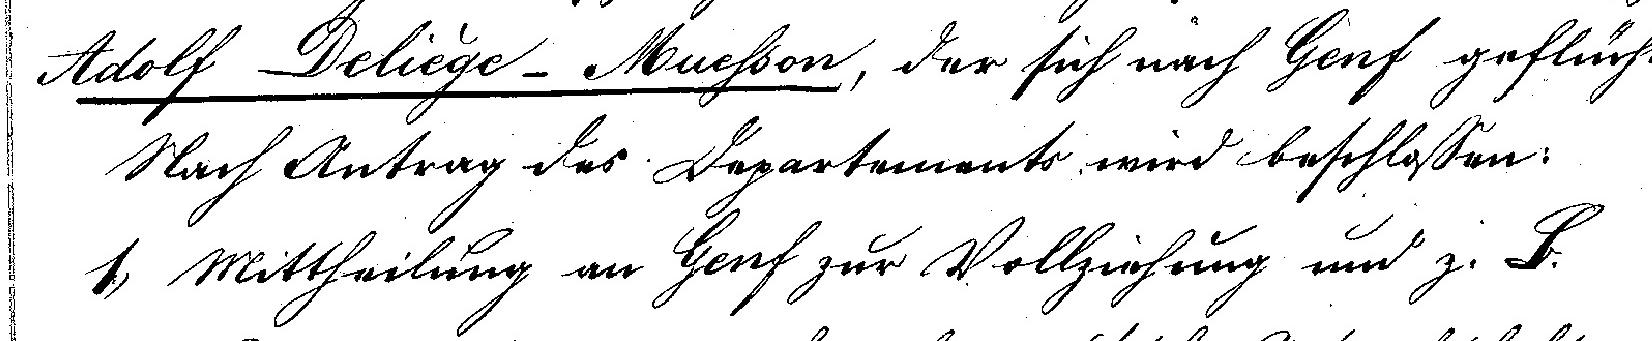 Adolf Deliège-Muesson, der sich nach Genf geflüch-
Nach Antrag des Departements wird beschlossen:
1, Mittheilung an Genf zur Vollziehung und z. B.